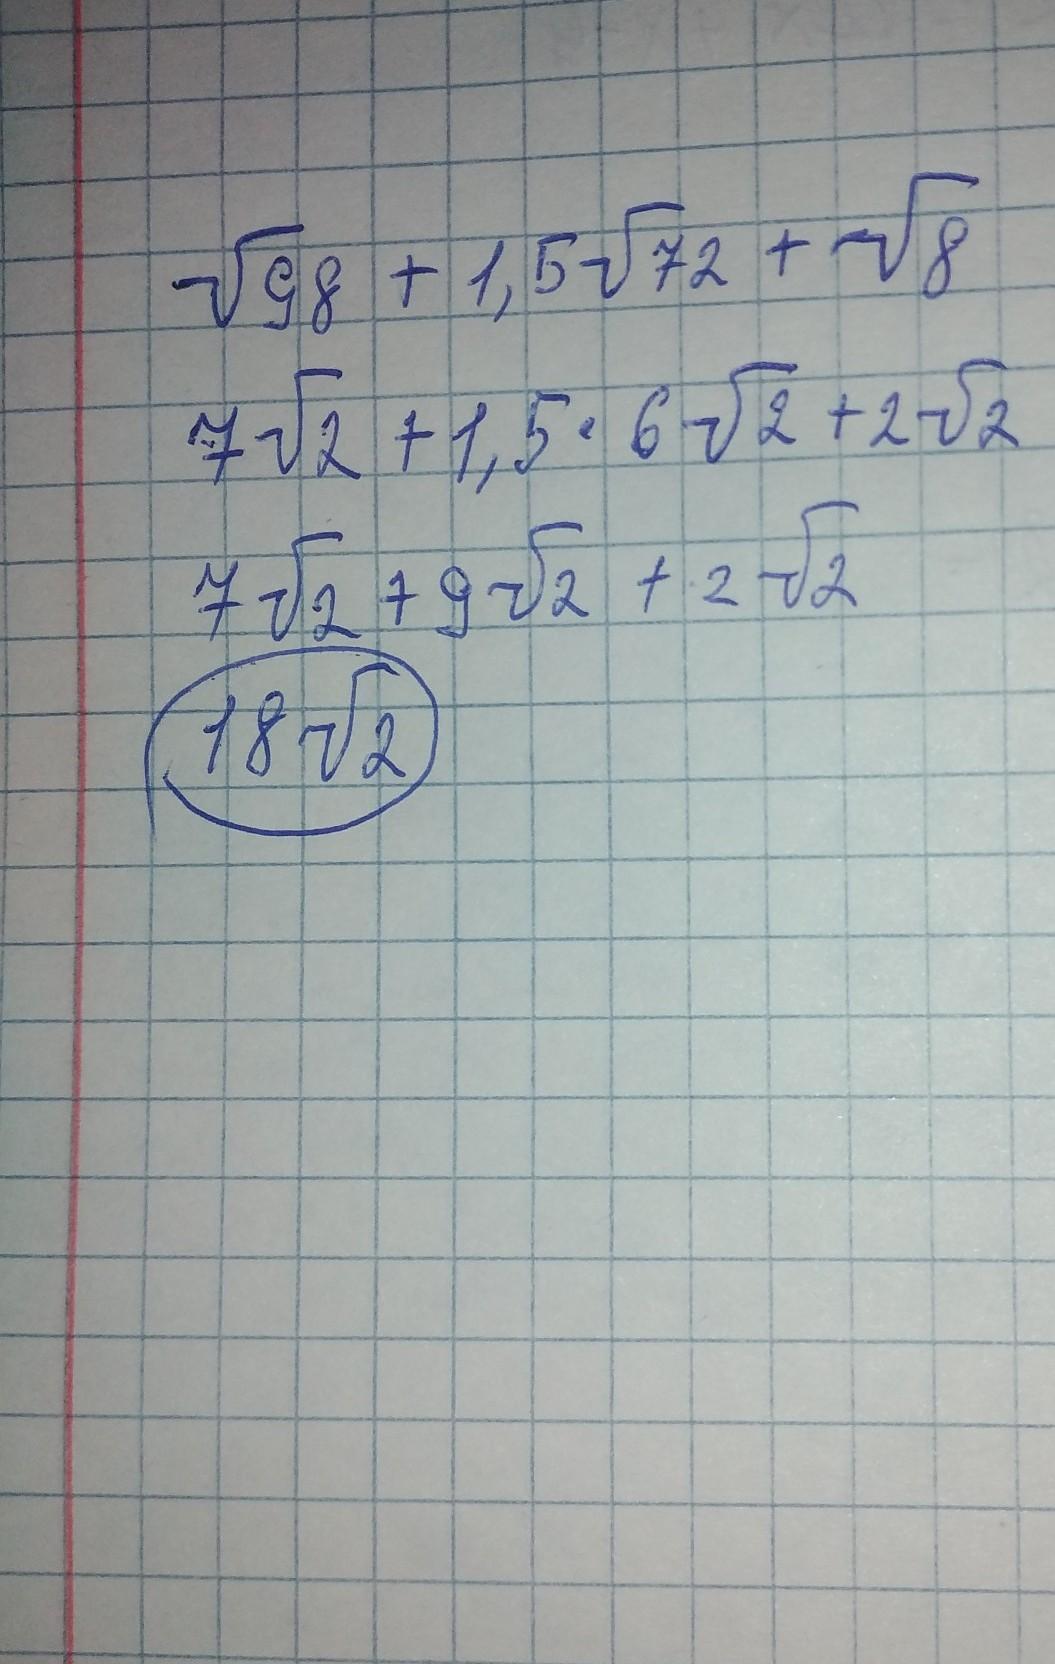 √98 + 1,5√72 + √8
7√2 + 1,5 · 6√2 + 2√2
7√2 + 9√2 + 2√2
18√2